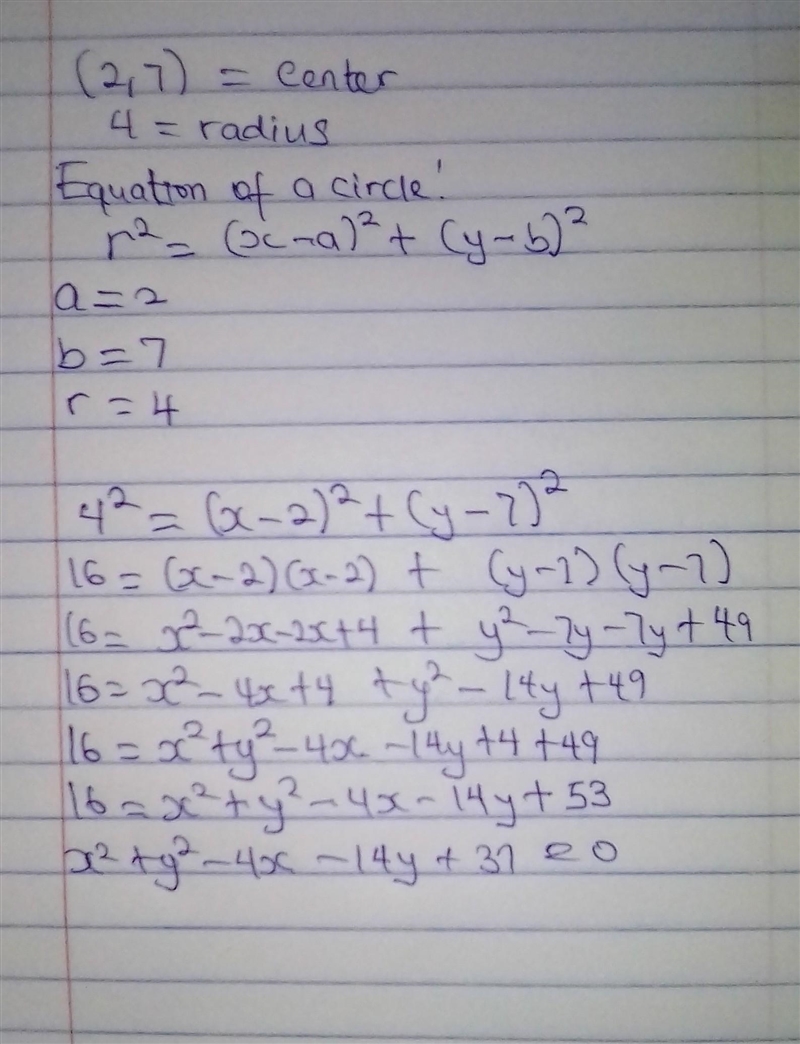 (2,7) = Center
4 = radius
Equation of a circle:
r² = (x-a)² + (y-b)²
a = 2
b = 7
r = 4
4² = (x-2)² + (y-7)²
16 = (x-2)(x-2) + (y-7)(y-7)
16 = x²-2x-2x+4 + y²-7y-7y+49
16 = x²-4x+4 +y²-14y+49
16 = x²+y²-4x-14y+4+49
16 = x²+y²-4x-14y+53
x²+y²-4x-14y+37 = 0